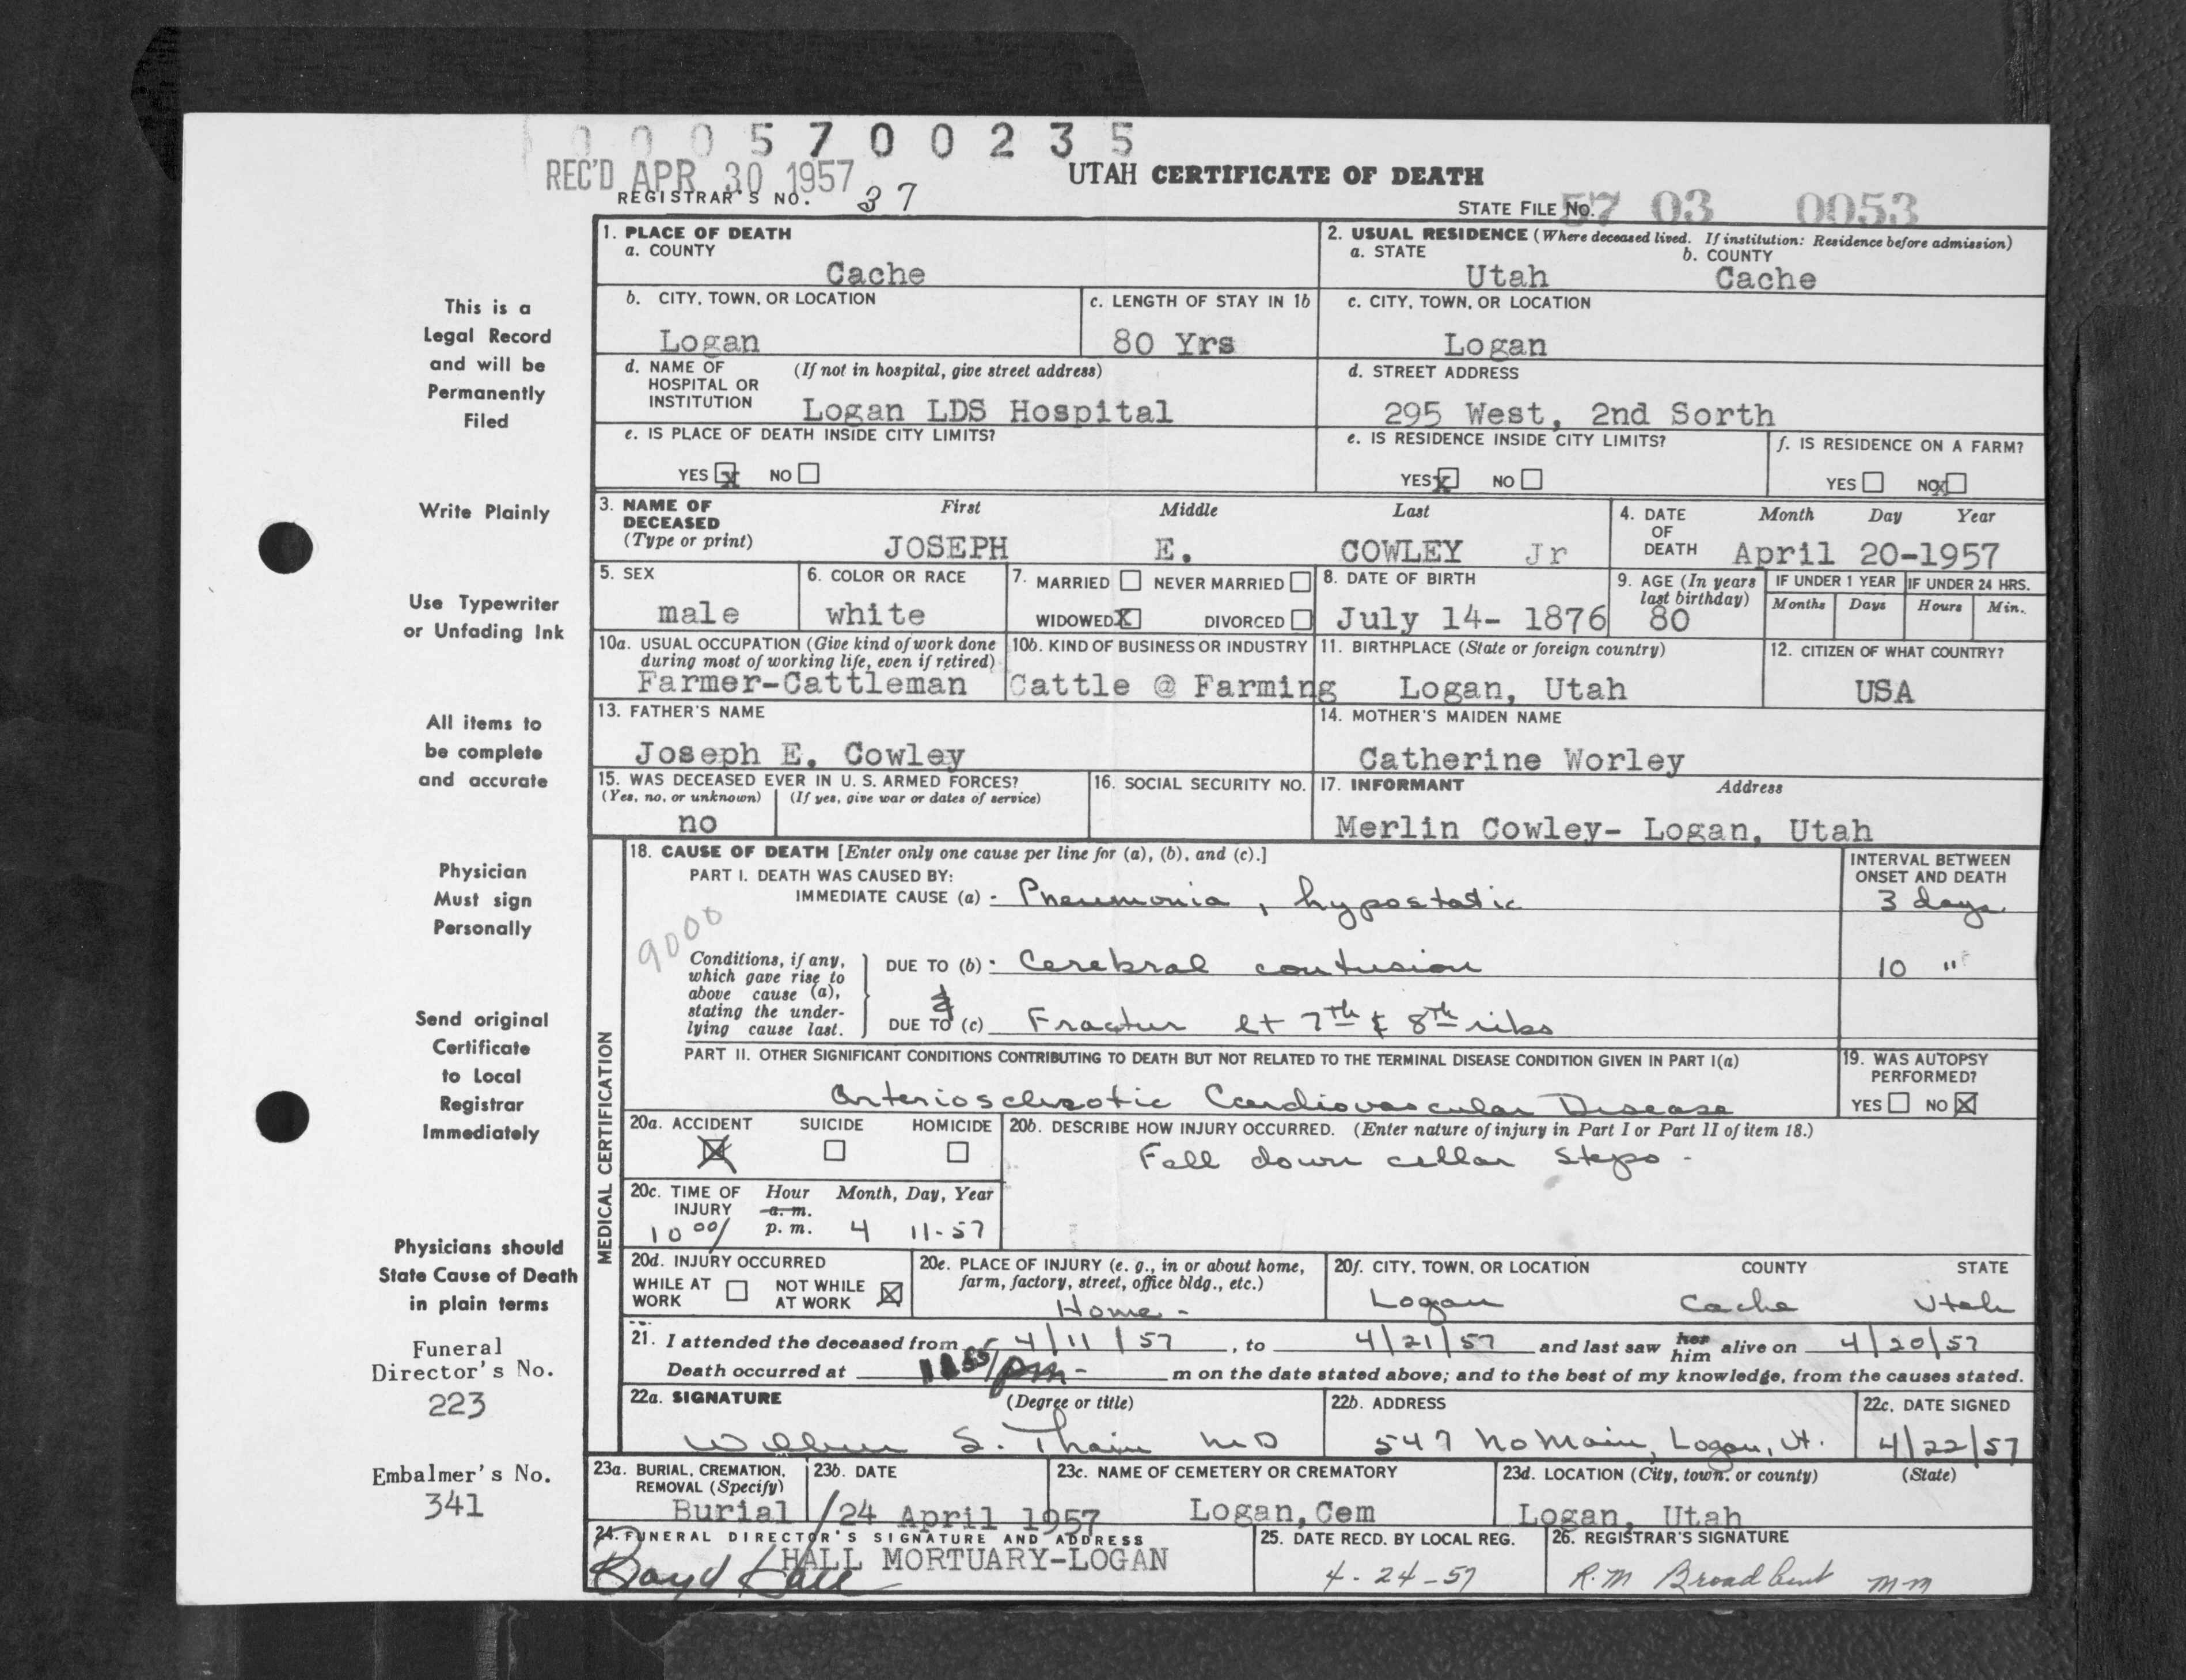 0 0 0 5 7 0 0 2 3 5
REC'D APR 30 1957
UTAH CERTIFICATE OF DEATH
REGISTRAR'S NO. 37
STATE FILE NO. 57 03 0053
This is a
Legal Record
and will be
Permanently
Filed
Write Plainly
Use Typewriter
or Unfading Ink
All items to
be complete
and accurate
Physician
Must sign
Personally
Send original
Certificate
to Local
Registrar
Immediately
Physicians should
State Cause of Death
in plain terms
Funeral
Director's No.
223
Embalmer's No.
341
1. PLACE OF DEATH
a. COUNTY
Cache
2. USUAL RESIDENCE (Where deceased lived. If institution: Residence before admission)
a. STATE b. COUNTY
Utah Cache
b. CITY, TOWN, OR LOCATION
Logan
c. LENGTH OF STAY IN 1b
80 Yrs
c. CITY, TOWN, OR LOCATION
Logan
d. NAME OF (If not in hospital, give street address)
HOSPITAL OR
INSTITUTION Logan LDS Hospital
d. STREET ADDRESS
295 West, 2nd Sorth
e. IS PLACE OF DEATH INSIDE CITY LIMITS?
YES X NO
e. IS RESIDENCE INSIDE CITY LIMITS?
YES X NO
f. IS RESIDENCE ON A FARM?
YES NO X
3. NAME OF First Middle Last
DECEASED
(Type or print)
JOSEPH E. COWLEY Jr
4. DATE Month Day Year
OF
DEATH April 20-1957
5. SEX
male
6. COLOR OR RACE
white
7. MARRIED NEVER MARRIED
WIDOWED X DIVORCED
8. DATE OF BIRTH
July 14- 1876
9. AGE (In years
last birthday)
80
IF UNDER 1 YEAR IF UNDER 24 HRS.
Months Days Hours Min.
10a. USUAL OCCUPATION (Give kind of work done
during most of working life, even if retired)
Farmer-Cattleman
10b. KIND OF BUSINESS OR INDUSTRY
Cattle @ Farming
11. BIRTHPLACE (State or foreign country)
Logan, Utah
12. CITIZEN OF WHAT COUNTRY?
USA
13. FATHER'S NAME
Joseph E. Cowley
14. MOTHER'S MAIDEN NAME
Catherine Worley
15. WAS DECEASED EVER IN U. S. ARMED FORCES?
(Yes, no, or unknown) (If yes, give war or dates of service)
no
16. SOCIAL SECURITY NO.
17. INFORMANT Address
Merlin Cowley- Logan, Utah
MEDICAL CERTIFICATION
18. CAUSE OF DEATH [Enter only one cause per line for (a), (b), and (c).]
PART I. DEATH WAS CAUSED BY:
IMMEDIATE CAUSE (a) - Pneumonia, hypostatic
INTERVAL BETWEEN
ONSET AND DEATH
3 days
9000
Conditions, if any,
which gave rise to
above cause (a),
stating the under-
lying cause last.
DUE TO (b) - Cerebral contusion
10 "
DUE TO & (c) Fractur lt 7th & 8th ribs
PART II. OTHER SIGNIFICANT CONDITIONS CONTRIBUTING TO DEATH BUT NOT RELATED TO THE TERMINAL DISEASE CONDITION GIVEN IN PART I(a)
Arteriosclerotic Cardiovascular Disease
19. WAS AUTOPSY
PERFORMED?
YES NO X
20a. ACCIDENT SUICIDE HOMICIDE
X
20b. DESCRIBE HOW INJURY OCCURRED. (Enter nature of injury in Part I or Part II of item 18.)
Fell down cellar steps -
20c. TIME OF Hour Month, Day, Year
INJURY a. m.
10 00/ p. m. 4 11-57
20d. INJURY OCCURRED
WHILE AT NOT WHILE X
WORK AT WORK
20e. PLACE OF INJURY (e. g., in or about home,
farm, factory, street, office bldg., etc.)
Home -
20f. CITY, TOWN, OR LOCATION COUNTY STATE
Logan Cache Utah
21. I attended the deceased from 4/11/57, to 4/21/57 and last saw her him alive on 4/20/57
Death occurred at 11 55/pm - m on the date stated above; and to the best of my knowledge, from the causes stated.
22a. SIGNATURE (Degree or title)
Wilbur S. Thain MD
22b. ADDRESS
547 No Main, Logan, Ut.
22c. DATE SIGNED
4/22/57
23a. BURIAL, CREMATION,
REMOVAL (Specify)
Burial
23b. DATE
24 April 1957
23c. NAME OF CEMETERY OR CREMATORY
Logan, Cem
23d. LOCATION (City, town, or county) (State)
Logan, Utah
24. FUNERAL DIRECTOR'S SIGNATURE AND ADDRESS
HALL MORTUARY-LOGAN
Boyd Hall
25. DATE RECD. BY LOCAL REG.
4-24-57
26. REGISTRAR'S SIGNATURE
R.M Broadbent mm